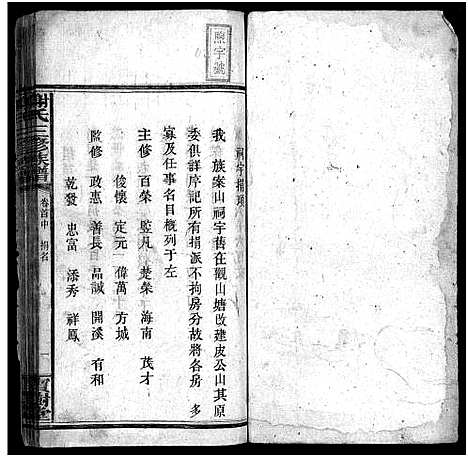 祠宇捐項
我　族案山祠宇舊在觀山塘改建皮公山其原
委俱詳序記所有捐派不拘房分故將各房　多
寡及任事名目概列于左
主修　百榮　監凡　楚榮　海南　茂才
俊懷　定元　偉萬　方城
監修　政惠　善長　品誠　開溪　有和
乾發　忠富　添秀　祥鳳
照字號
謝氏三修族譜
卷首中　捐名
寶樹堂